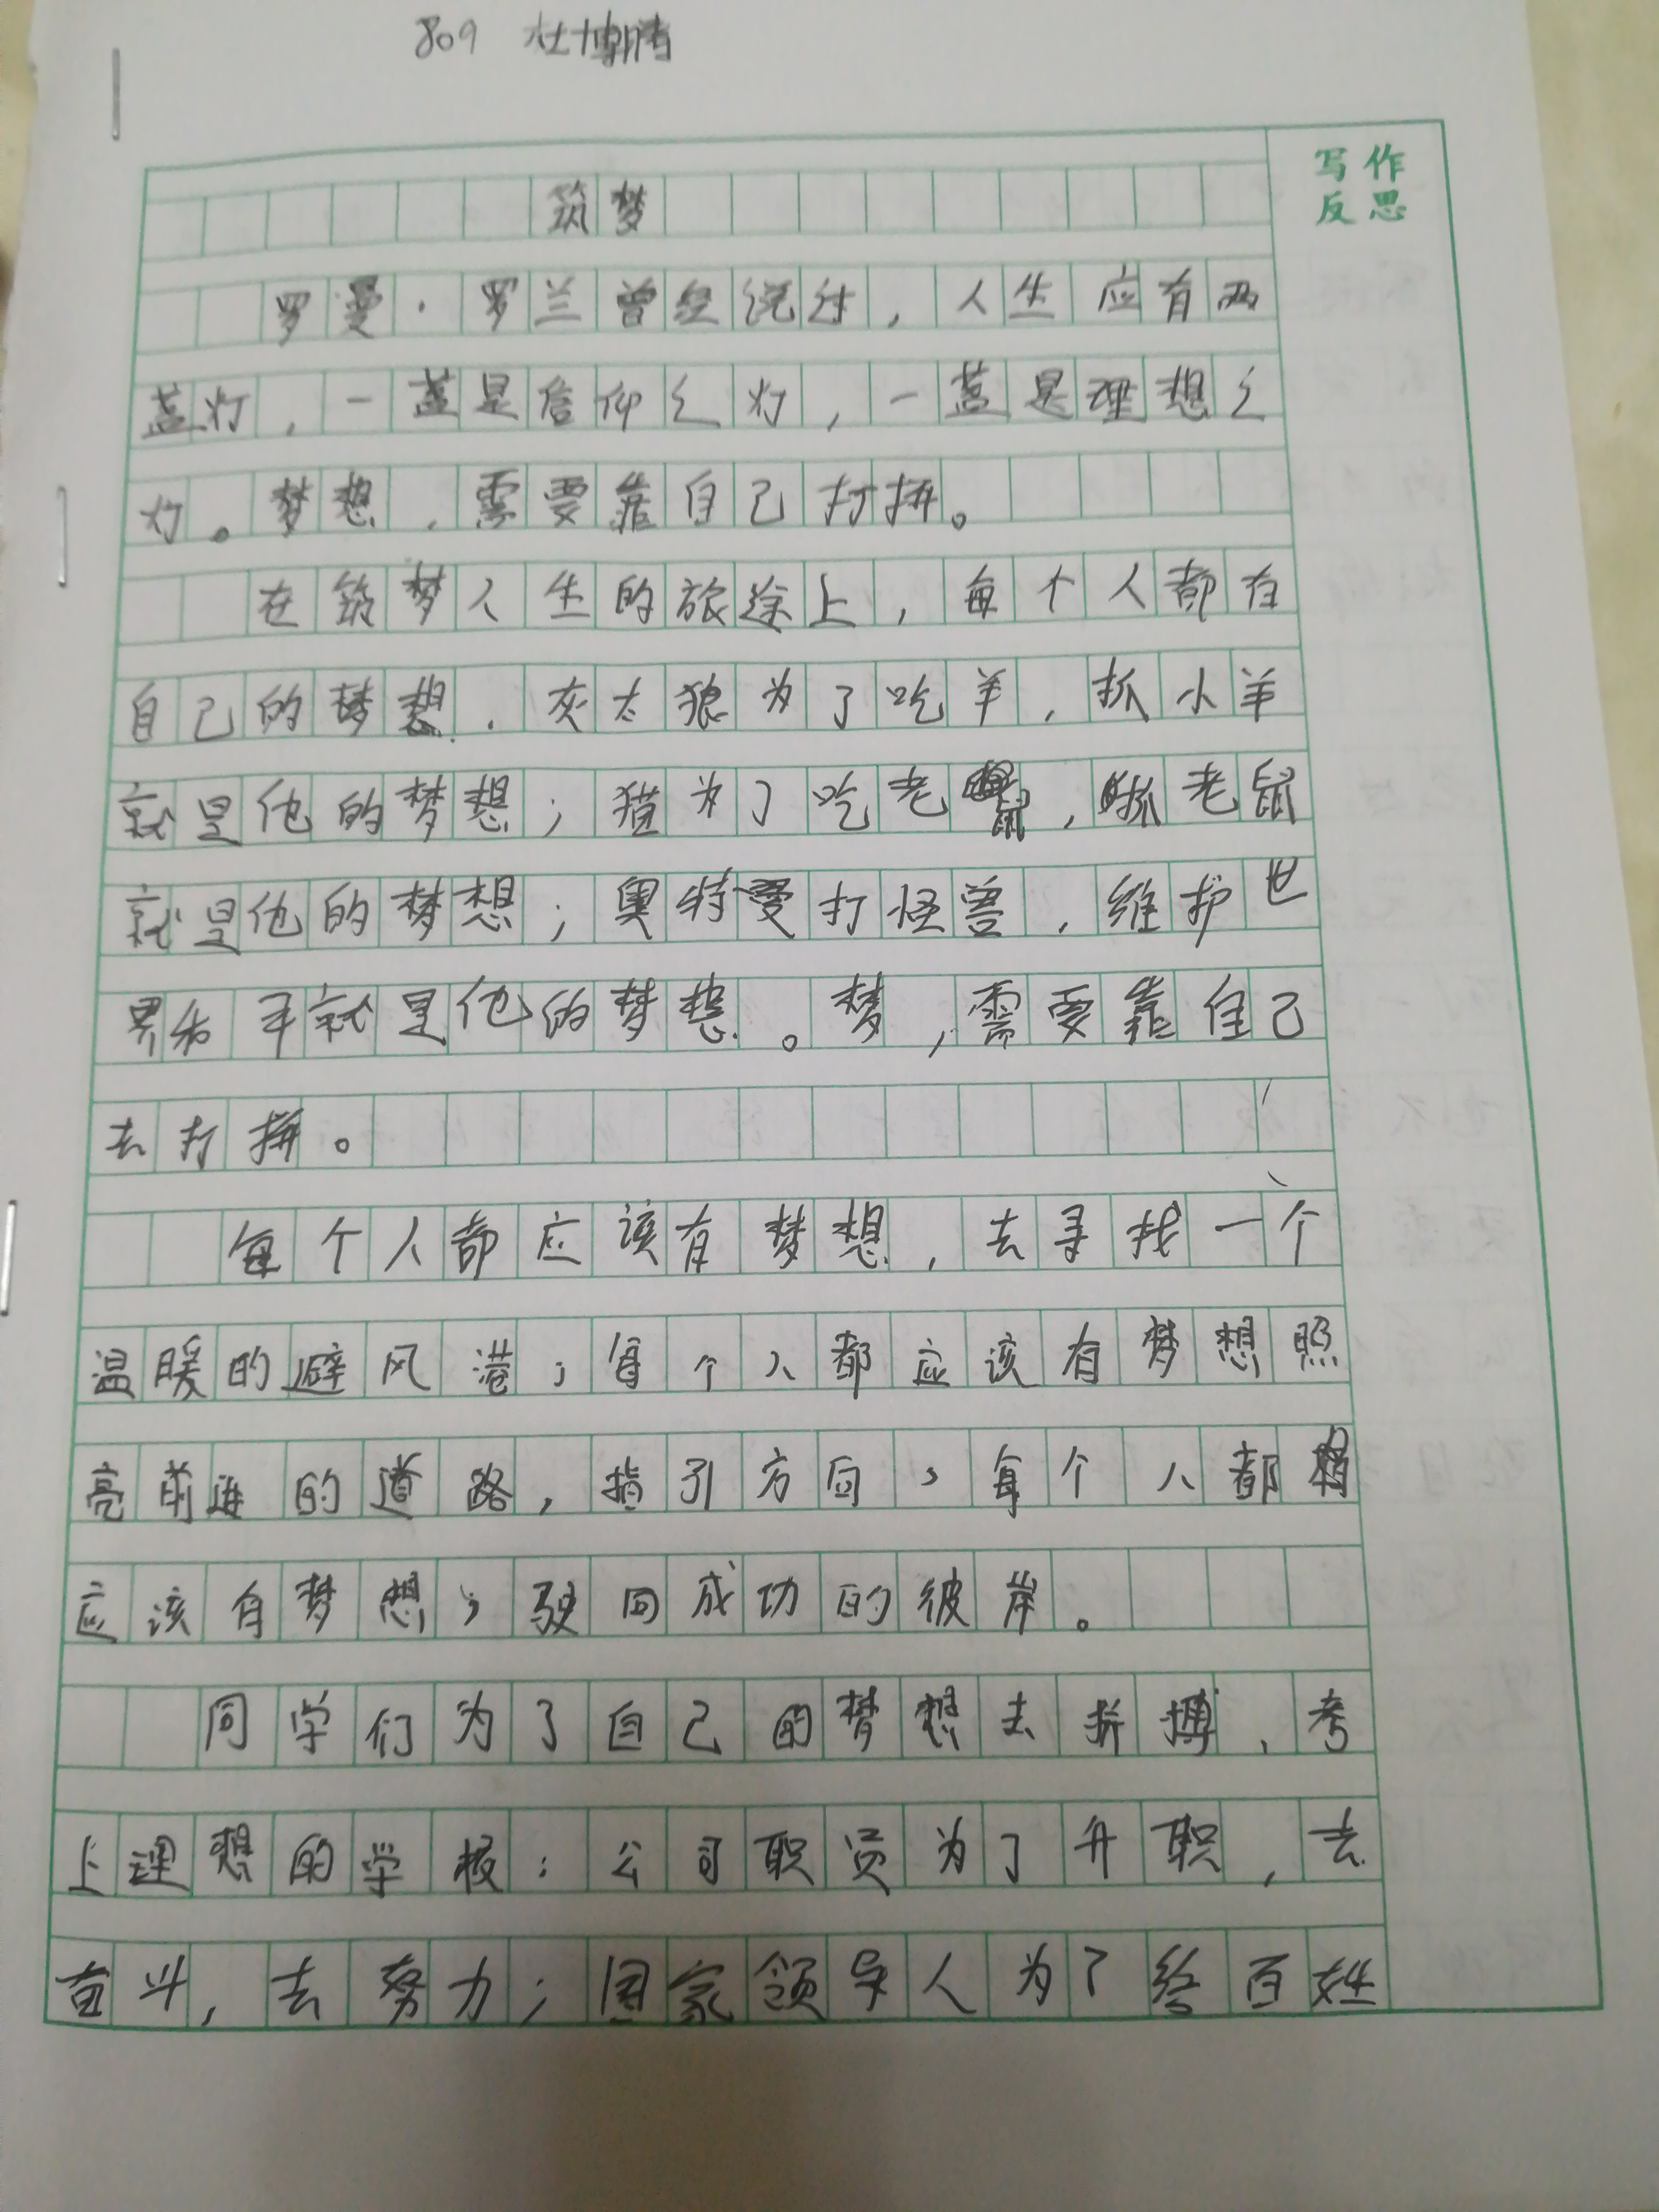 809 杜博腾
写作
反思
筑梦
罗曼·罗兰曾经说过，人生应有两
盏灯，一盏是信仰之灯，一盏是理想之
灯。梦想，需要靠自己打拼。
在筑梦人生的旅途上，每个人都有
自己的梦想，灰太狼为了吃羊，抓小羊
就是他的梦想；猫为了吃老鼠，抓老鼠
就是他的梦想；奥特曼打怪兽，维护世
界和平就是他的梦想。梦，需要靠自己
去打拼。
每个人都应该有梦想，去寻找一个
温暖的避风港；每个人都应该有梦想照
亮前进的道路，指引方向；每个人都
应该有梦想，驶向成功的彼岸。
同学们为了自己的梦想去拼搏，考
上理想的学校；公司职员为了升职，去
奋斗，去努力；国家领导人为了给百姓